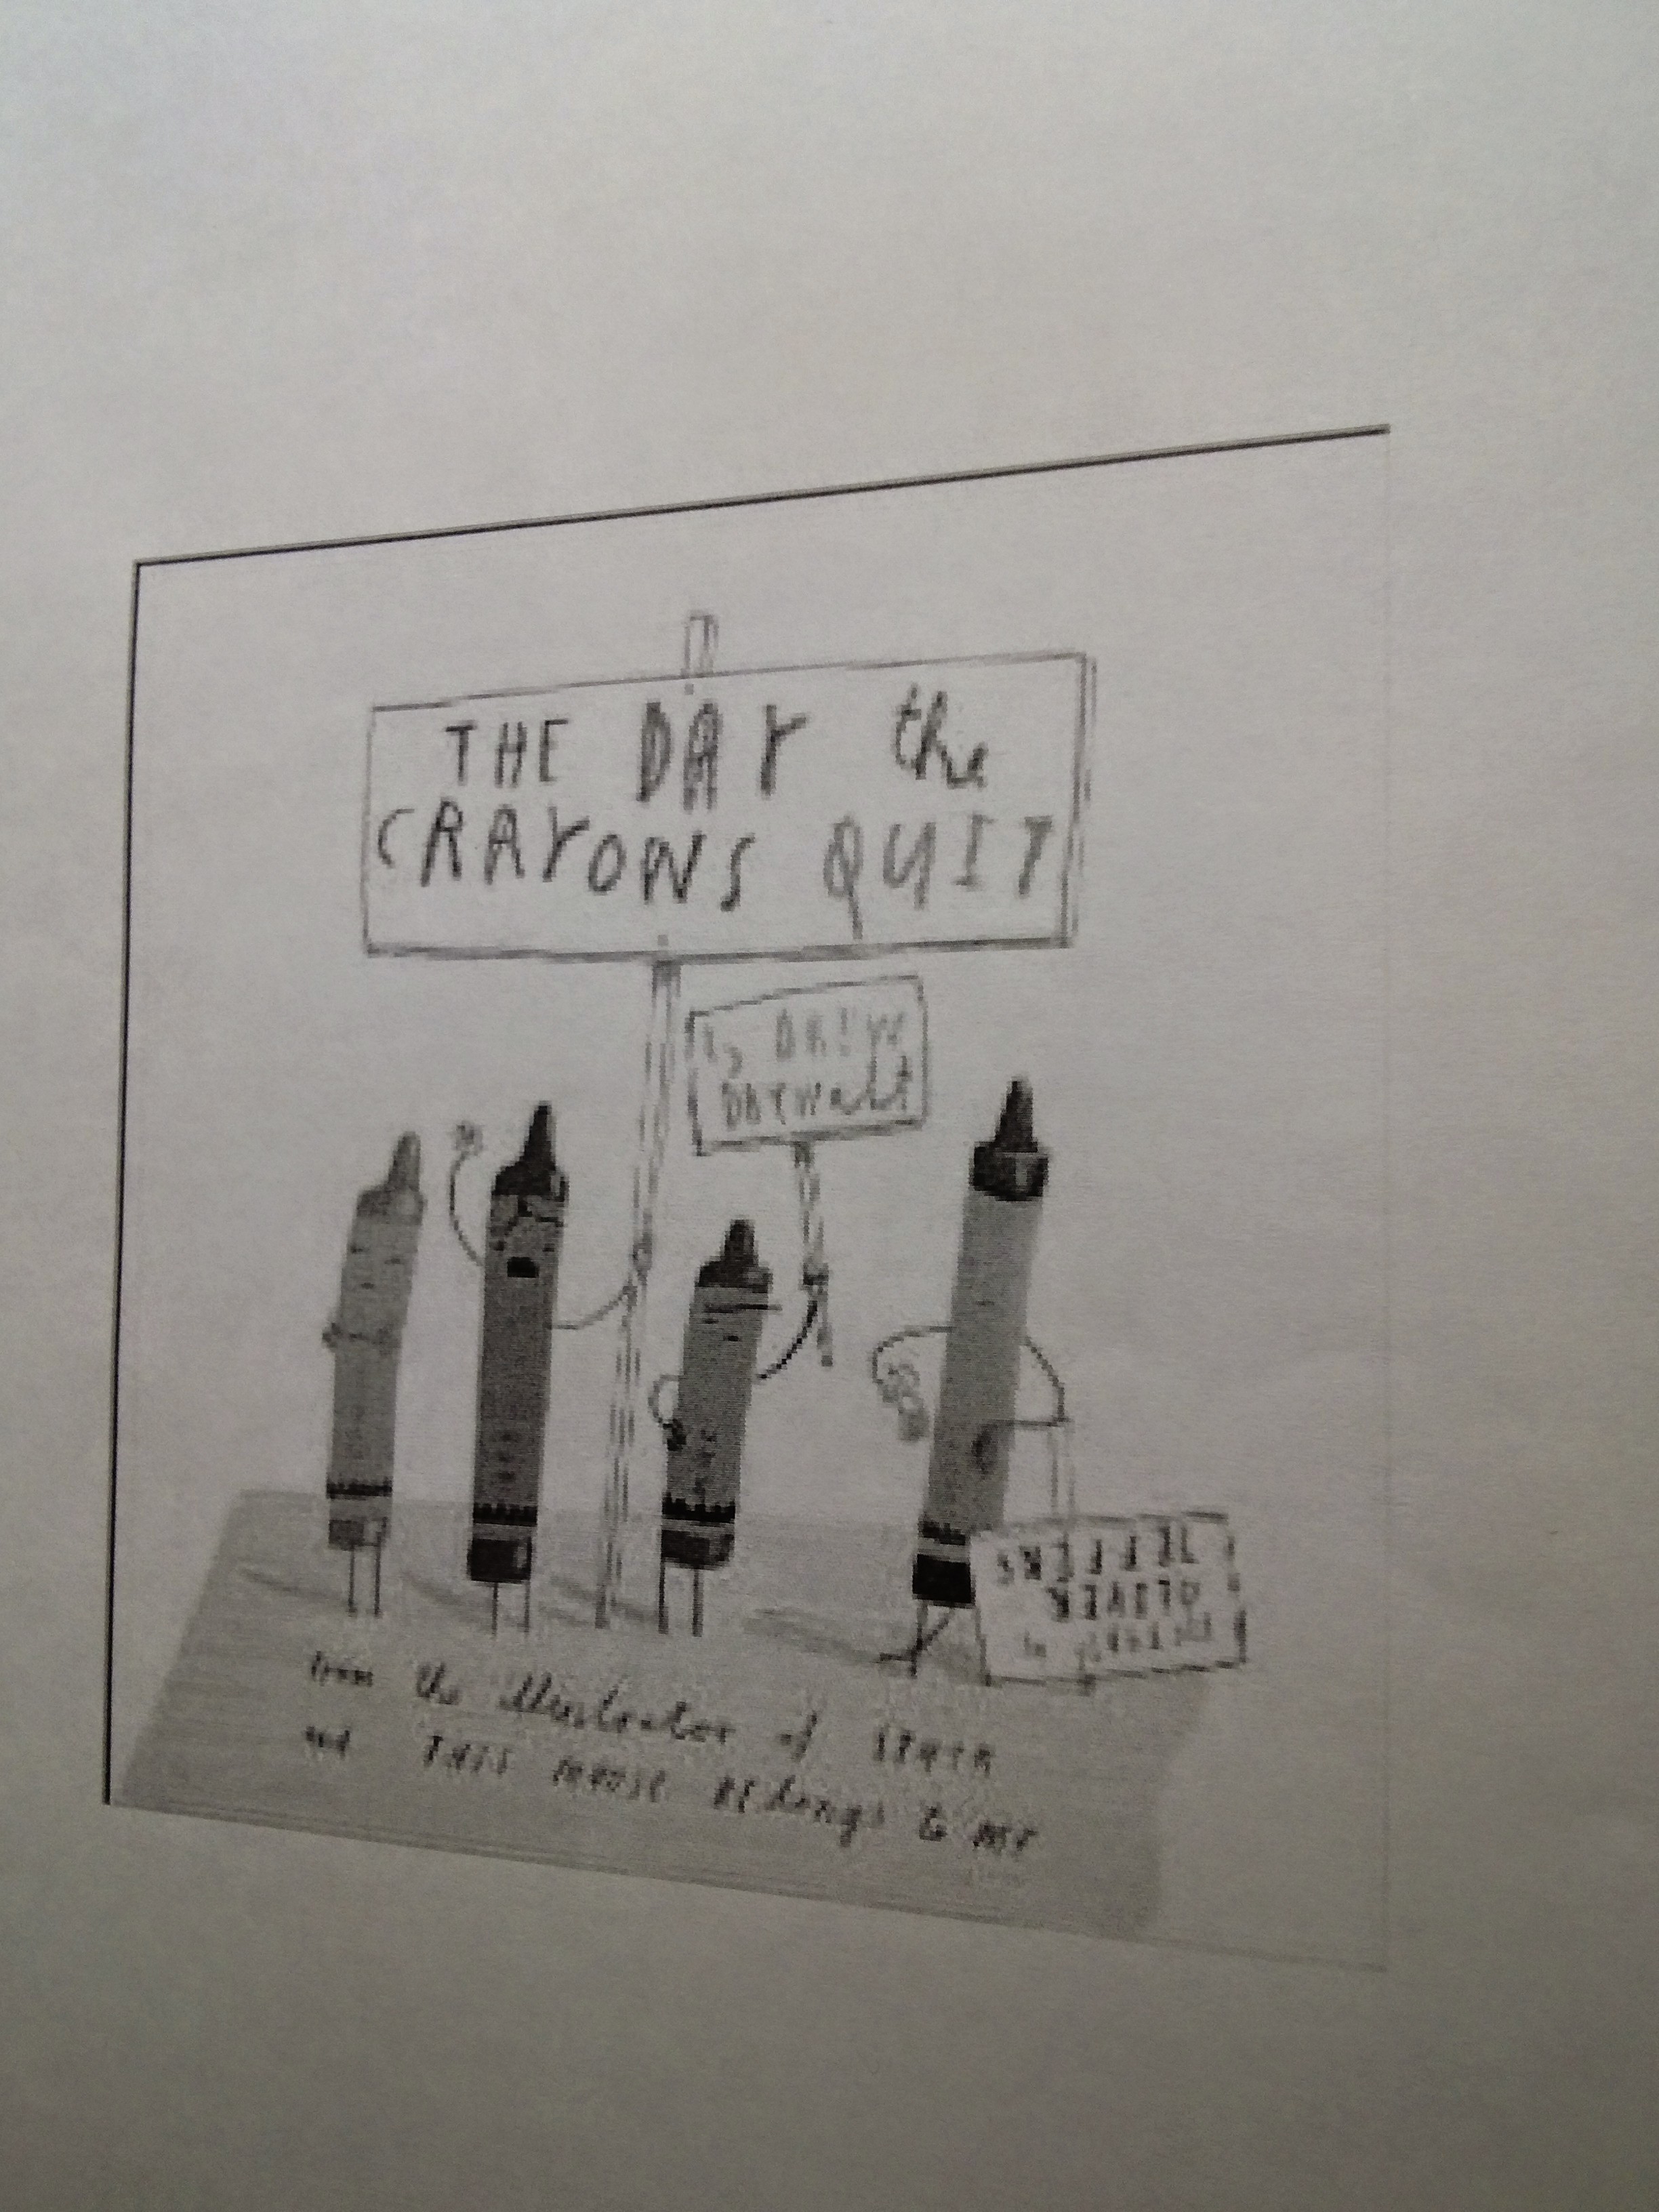 THE DAY the
CRAYONS QUIT
by DREW
DAYWALT
PICTURES by
OLIVER
JEFFERS
from the illustrator of STUCK
and THIS MOOSE BELONGS to ME